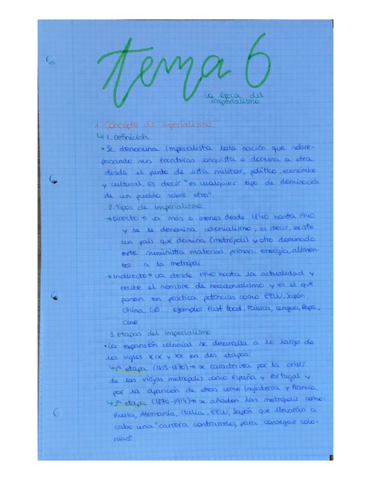 tema 6
La época del
imperialismo
1. Concepto del imperialismo
↳ 1. Definición
• Se denomina imperialista toda nación que sobre-
pasando sus fronteras conquista o domina a otra
desde el punto de vista militar, político, económico
y cultural, es decir "es cualquier tipo de dominación
de un pueblo sobre otro".
2. Tipos de imperialismo
va más o menos desde hasta
y se le denomina colonialismo, es decir, existe
un país que domina (metrópoli) y otro dominado
este suministra materias primas, energía, alimen-
tos a la metrópoli.
• Indirecto → va desde hasta la actualidad y
recibe el nombre de neocolonialismo y es el que
ponen en práctica potencias como EEUU, Japón
China, ejemplos: Fast food, Música, Lengua, Ropa,
Cine
3. Etapas del imperialismo
• La expansión colonial se desarrolla a lo largo de
los siglos XIX y XX en dos etapas:
↳ 1ª etapa se caracteriza por la crisis
de las viejas metrópolis como España y Portugal y
por la aparición de otras como Inglaterra y Francia.
↳ 2ª etapa (1870-1914) → se añaden las metrópolis como
Rusia, Alemania, Italia, EEUU, Japón que llevarán a
cabo una "carrera contrarreloj para conseguir colo-
nias"